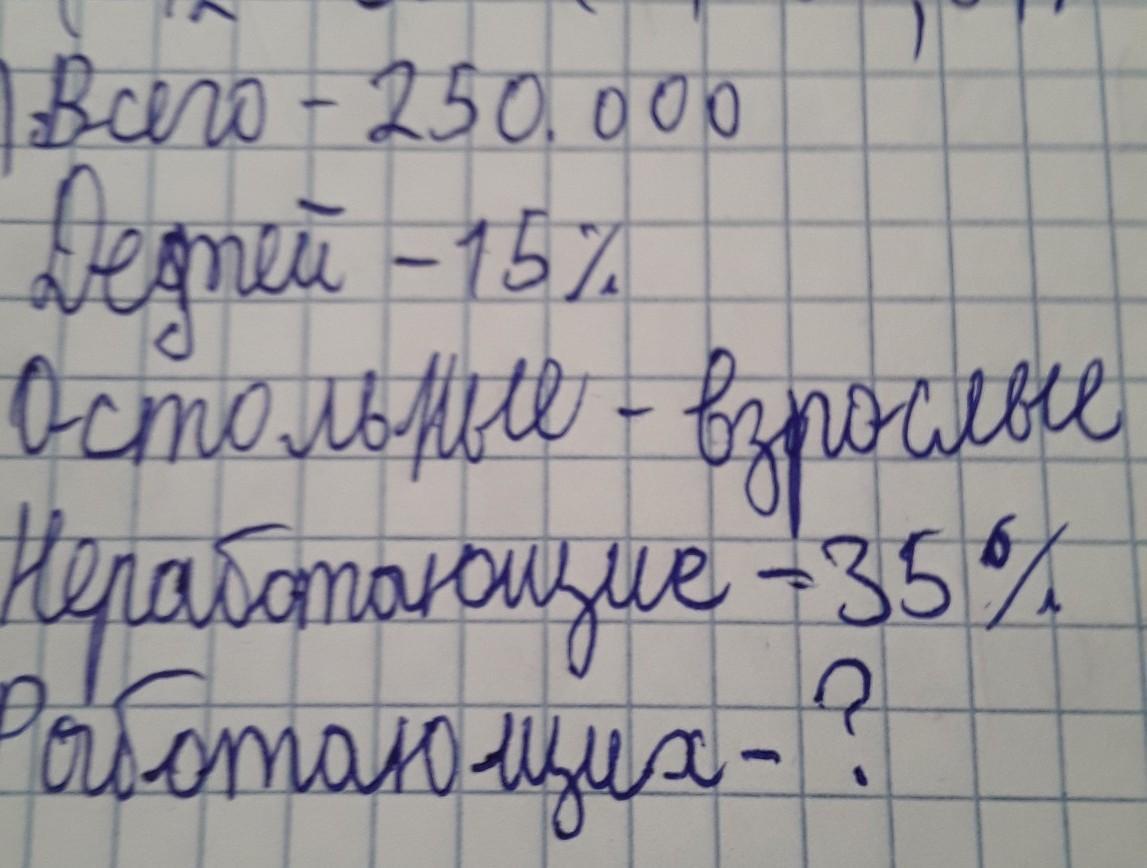 ) Всего - 250.000
Детей - 15%
Остольные - взрослые
Неработающие - 35%
Работающих - ?